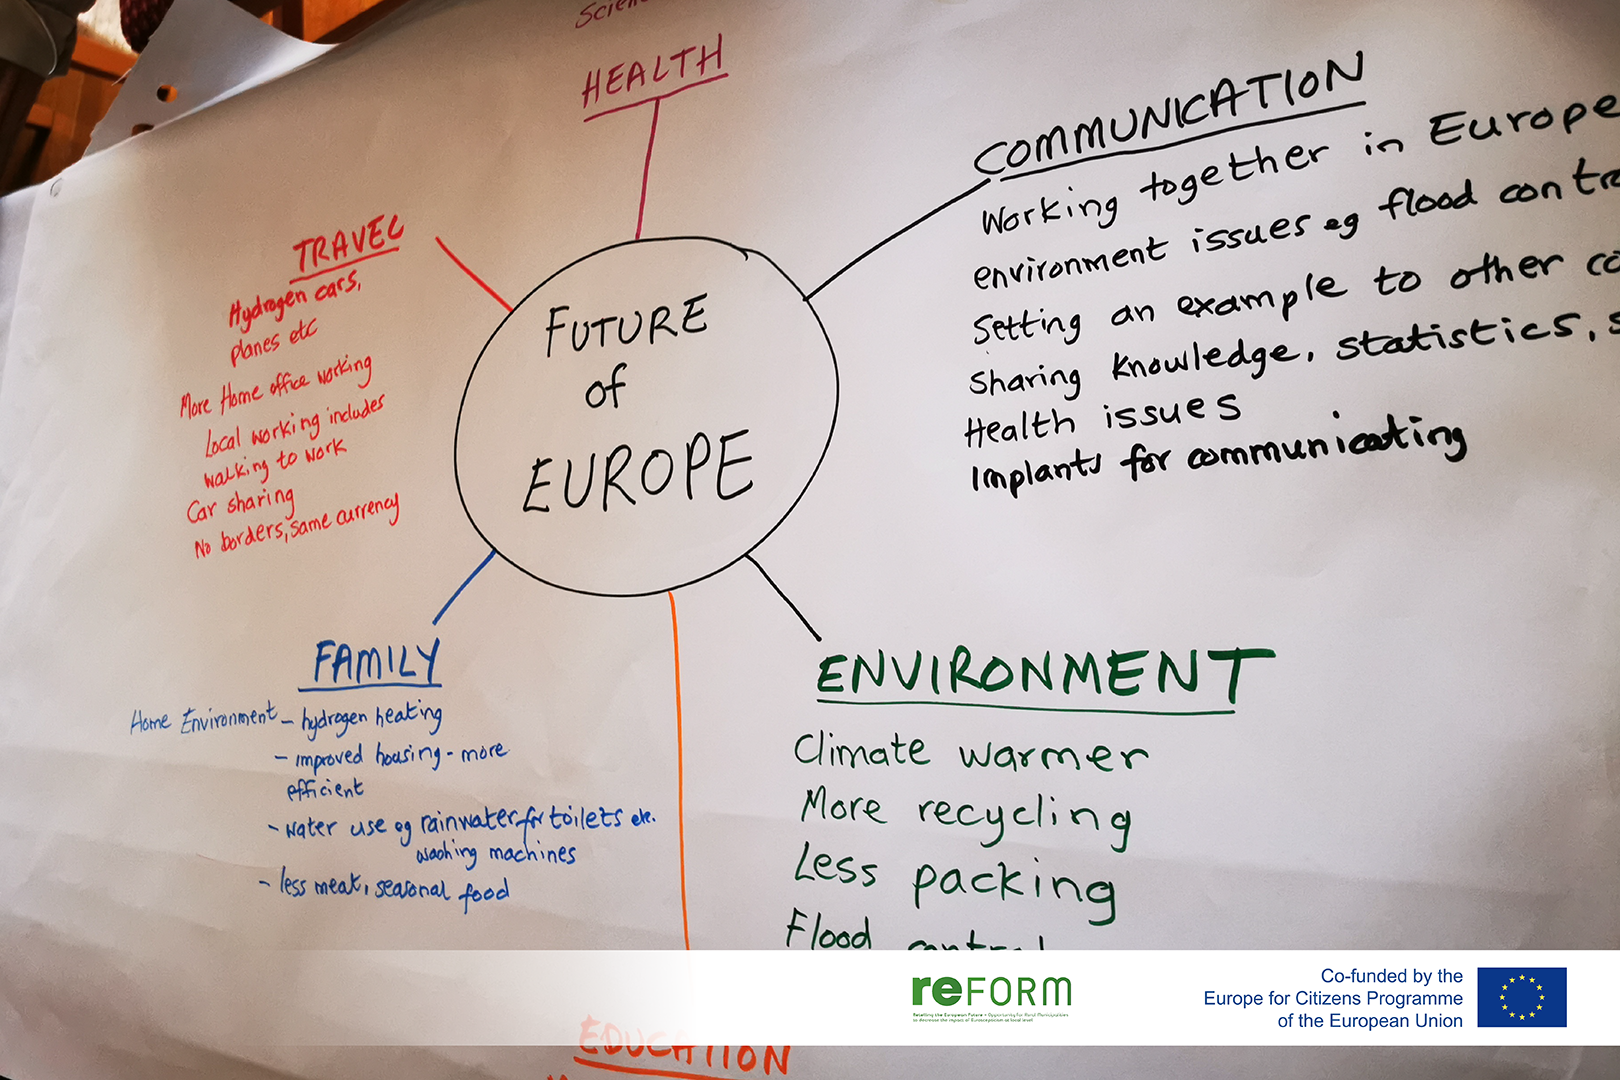 HEALTH
COMMUNICATION
Working together in Europe
environment issues eg flood
Setting an example to other
Sharing knowledge, statistics,
Health issues
Implants for communicating
TRAVEL
Hydrogen cars,
planes etc
More Home office working
Local working includes
walking to work
Car sharing
No borders, same currency
FUTURE
of
EUROPE
FAMILY
Home Environment - hydrogen heating
- improved housing - more
efficient
- water use eg rainwater for toilets etc.
washing machines
- less meat, seasonal food
ENVIRONMENT
Climate warmer
More recycling
Less packing
Flood control
EDUCATION
reFORM
Retelling the European Future – Opportunity for Rural Municipalities
to decrease the impact of Euroscepticism at local level
Co-funded by the
Europe for Citizens Programme
of the European Union